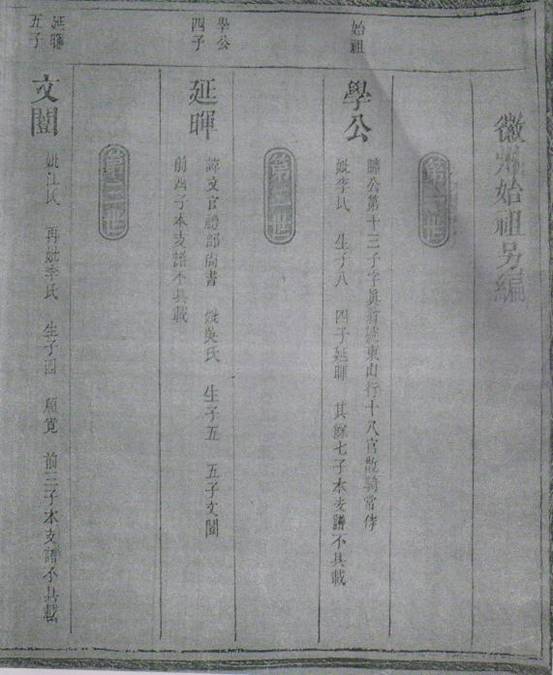 徽州始祖另編
第一世
始祖
學公
勝公第十三子字真翁號東山行十八官散騎常侍
妣李氏 生子八 四子延暉 其餘七子本支譜不具載
第二世
學公
四子
延暉
諱文官禮部尚書 妣吳氏 生子五 五子文閏
前四子本支譜不具載
第三世
延暉
五子
文閏
妣江氏 再妣李氏 生子四 前三子本支譜不具載